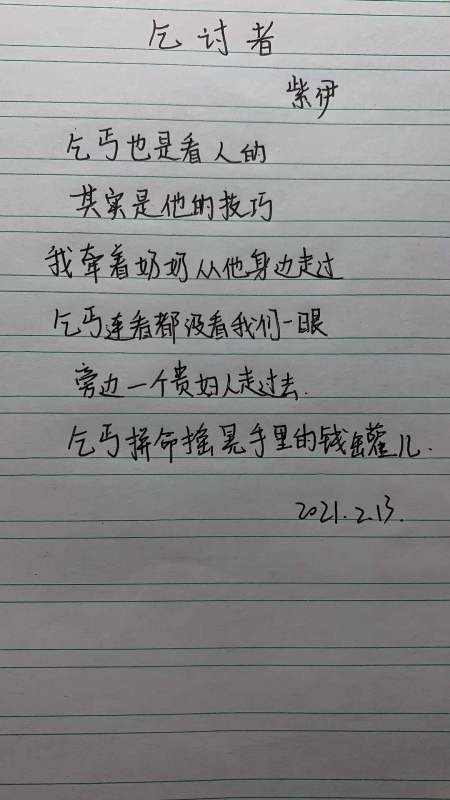 乞讨者
紫伊
乞丐也是看人的
其实是他的技巧
我牵着奶奶从他身边走过
乞丐连看都没看我们一眼
旁边一个贵妇人走过去.
乞丐拼命摇晃手里的钱罐儿.
2021.2.13.